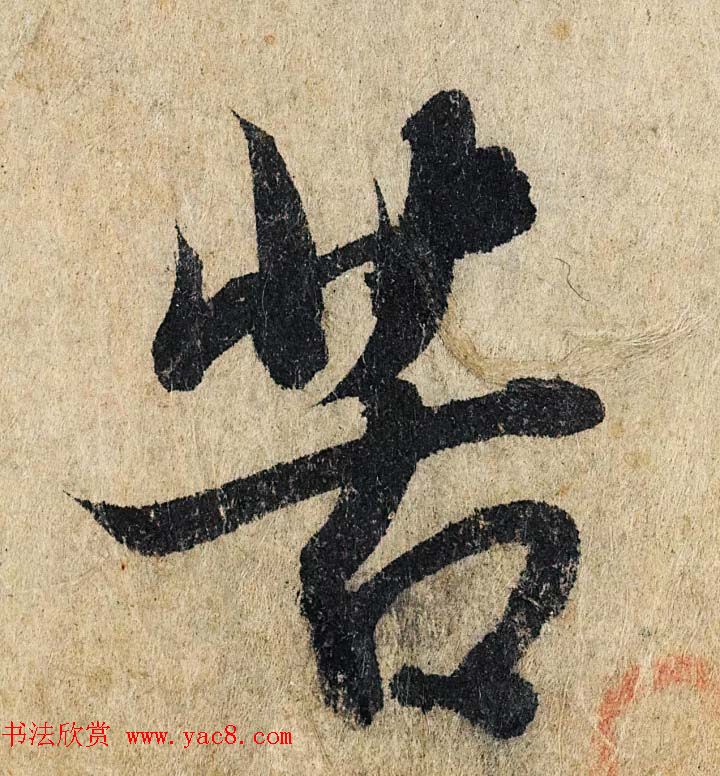 苦
书法欣赏 www.yac8.com